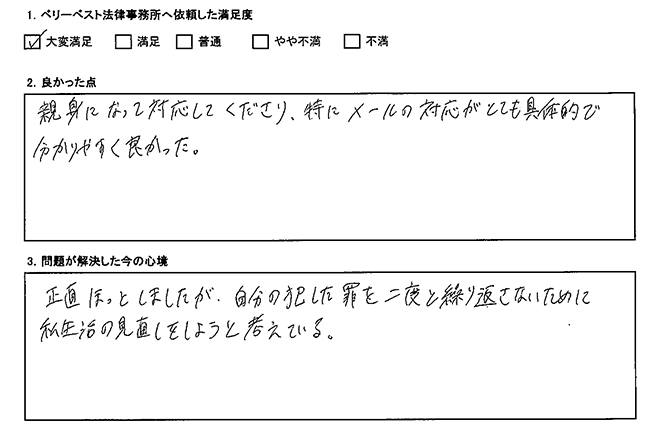 1. ベリーベスト法律事務所へ依頼した満足度
☑大変満足 □満足 □普通 □やや不満 □不満
2. 良かった点
親身になって対応してくださり、特にメールの対応がとても具体的で
分かりやすく良かった。
3. 問題が解決した今の心境
正直ほっとしましたが、自分の犯した罪を二度と繰り返さないために
私生活の見直しをしようと考えている。